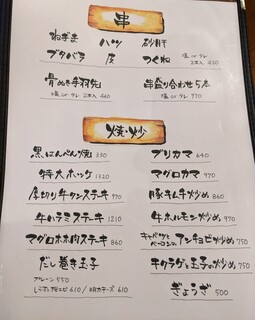 串
ねぎま ハツ 砂肝
ブタバラ 皮 つくね
塩 or タレ 2本入 440
塩 or タレ
骨ぬき手羽先 串盛り合わせ 5本
塩 or タレ 2本入 550
塩 or タレ 990
焼・炒
黒はんぺん焼 330 ブリカマ 640
特大ホッケ 1320 マグロカマ 770
厚切り牛タンステーキ 990 豚キムチ炒め 860
牛ハラミステーキ 1210 牛ホルモン炒め 970
マグロホホ肉ステーキ 860 キャベツとベーコンのアンチョビ炒め 750
だし巻き玉子 キクラゲと玉子の炒め 750
プレーン 550
しらす 610 / 明太チーズ 610 ぎょうざ 500